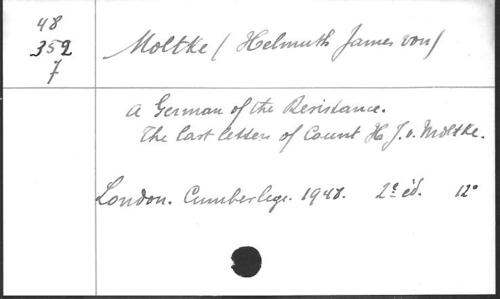 48
352
7
Moltke (Helmuth James von)
A German of the Resistance.
The last letters of Count H. J. v. Moltke.
London. Cumberlege. 1948. 2e éd. 12°